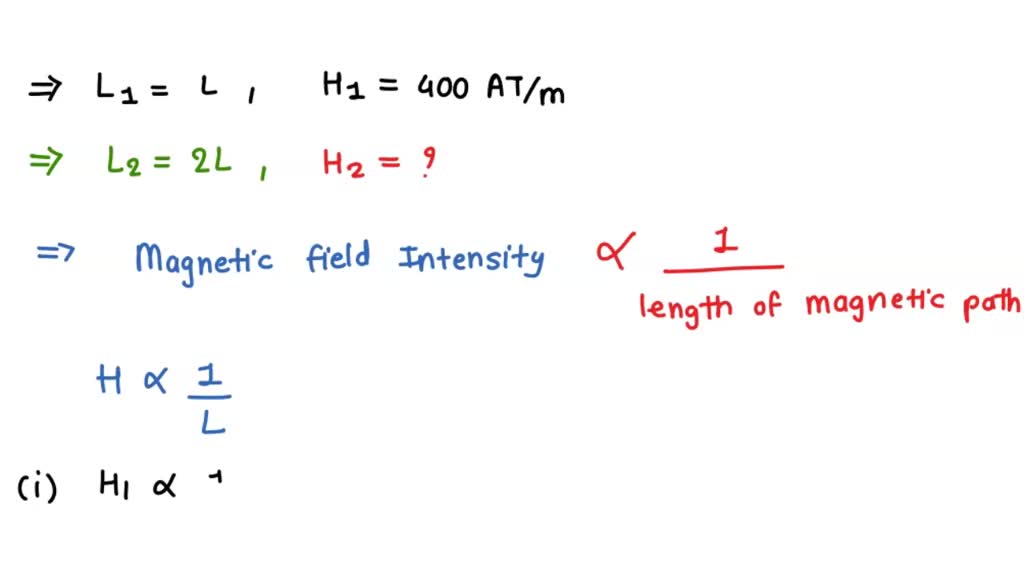 ⇒ L1 = L , H1 = 400 AT/m
⇒ L2 = 2L , H2 = ?
⇒ Magnetic field Intensity ∝ 1 / length of magnetic path
H ∝ 1 / L
(i) H1 ∝